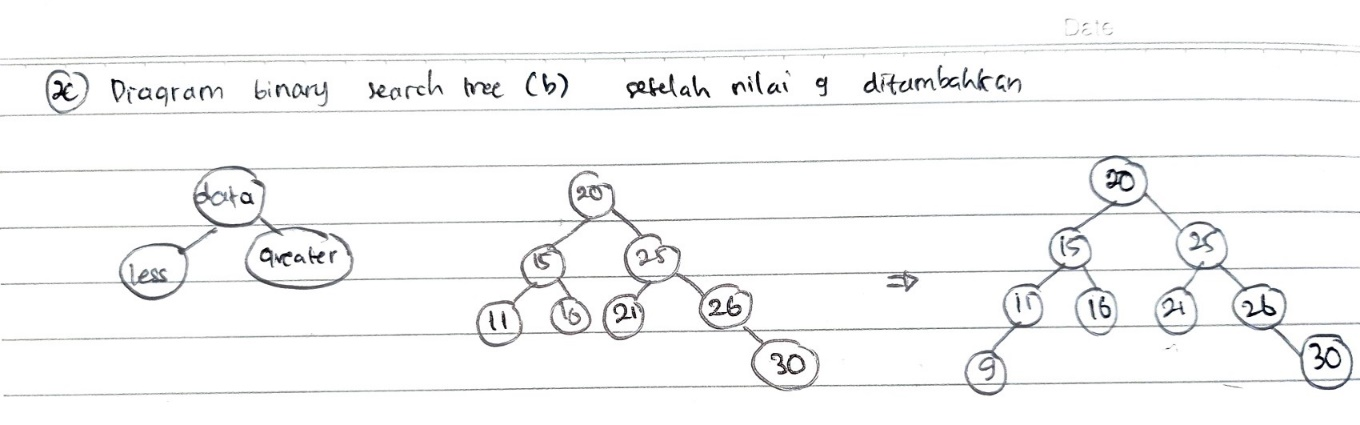 Date
2c Diagram binary search tree (b) setelah nilai 9 ditambahkan
data
less
greater
20
15 25
11 16 21 26
30
⇒
20
15 25
11 16 21 26
9 30